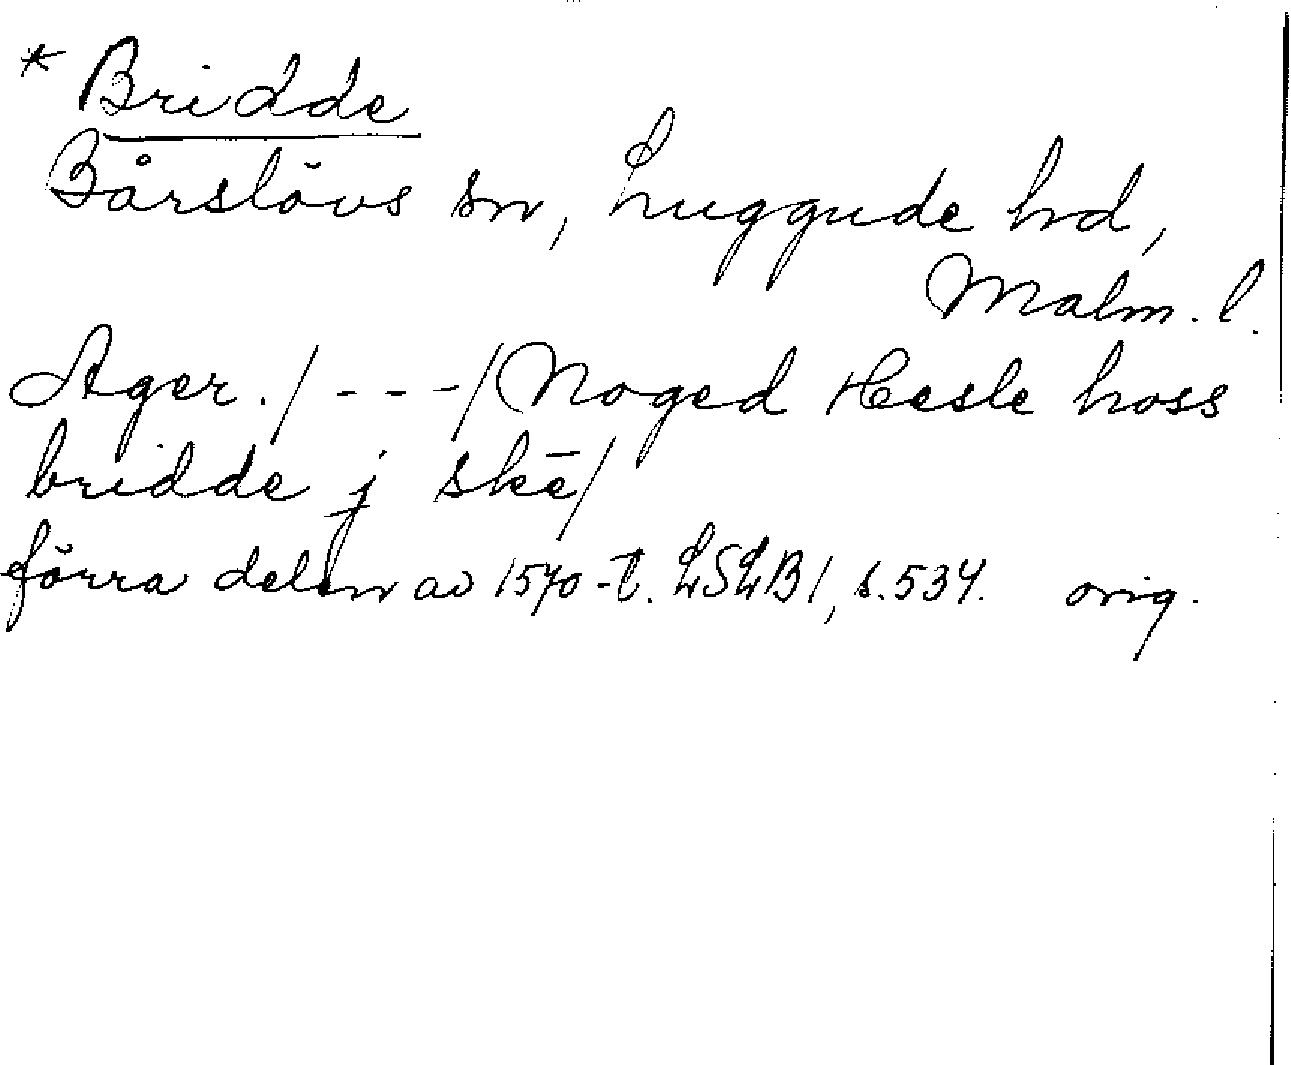 * Bridde
Bårslövs sn, Luggude hd,
Malm. l.
Ager. / - - - / Noged Hesle hoss
bridde j skē/
förra delen av 1570-t. LSLB 1, s. 534. orig.